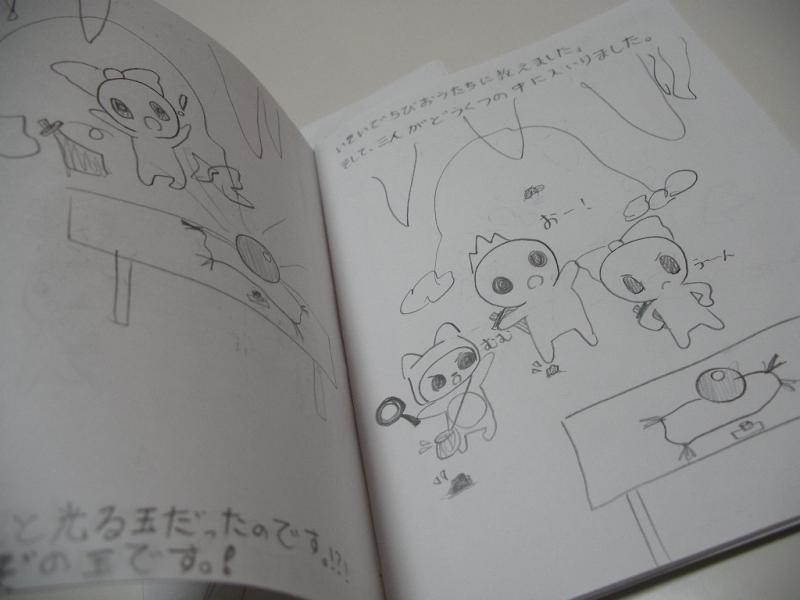 と光る玉だったのです。!?!
ぞの玉です。!
いそいでちびおうたちに教えました。
そして、三人がどうくつの中に入いりました。
おー!
うーん
むむ